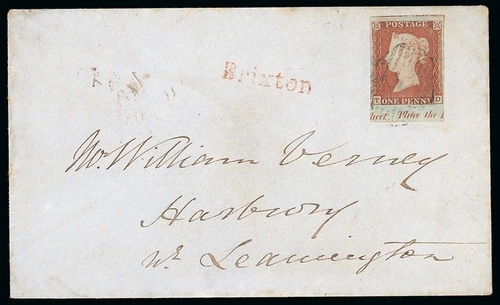 Brixton
POSTAGE
ONE PENNY
Place the
Mr. William Verney
Harbury
Nr. Leamington